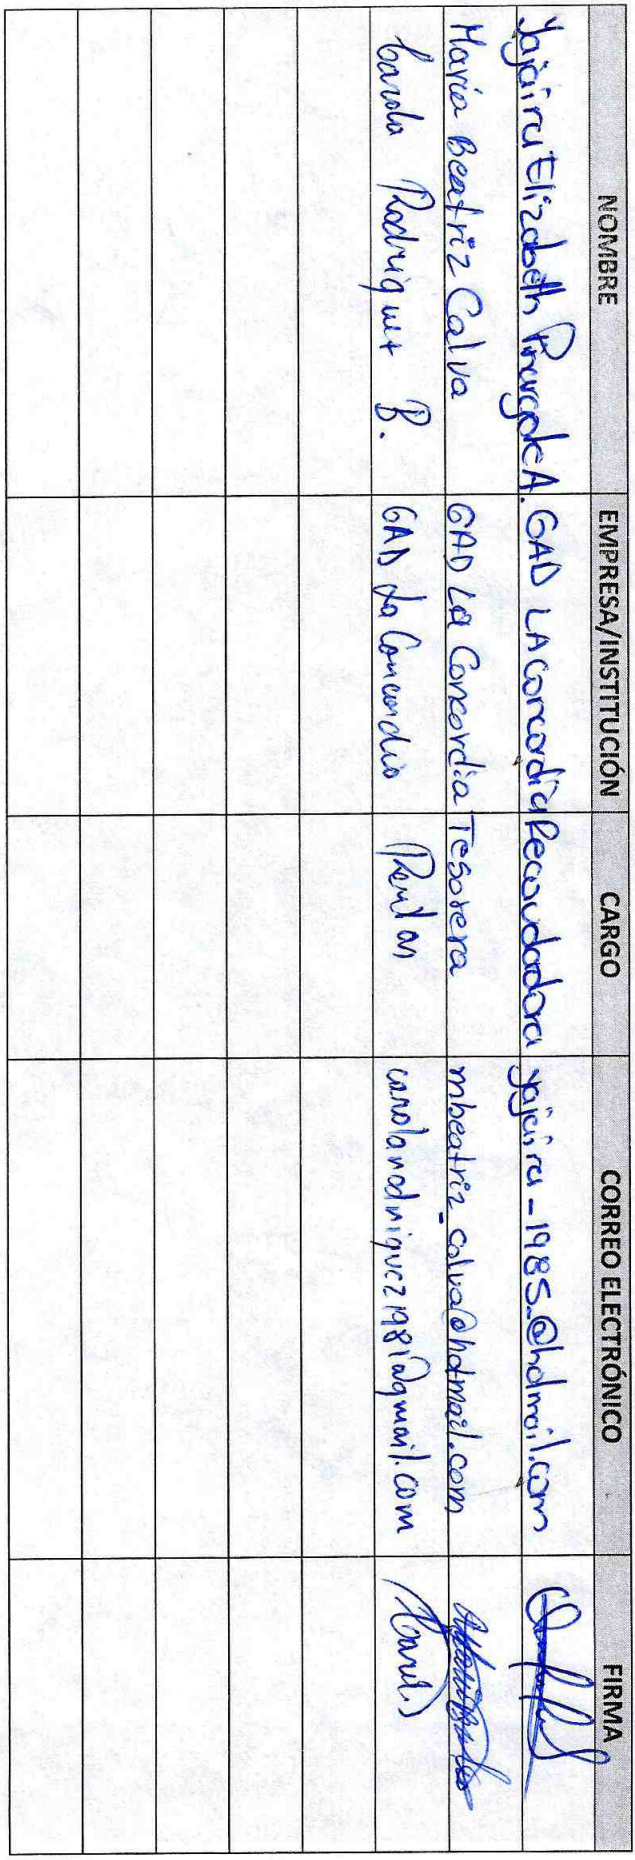 NOMBRE EMPRESA/INSTITUCIÓN CARGO CORREO ELECTRÓNICO FIRMA
Yajaira Elizabeth Pinargote A. GAD LA Concordia Recaudadora yajaira-1985_@hotmail.com
Maria Beatriz Calva GAD La Concordia Tesorera mbeatriz_calva@hotmail.com
Carola Rodriguez B. GAD La Concordia carolarodriguez1981@gmail.com